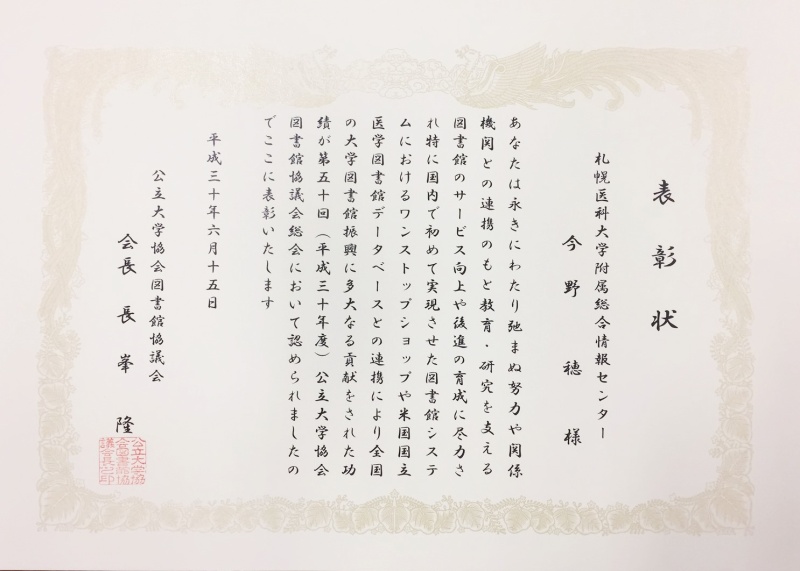 表彰状
札幌医科大学附属総合情報センター
今野穂様
あなたは永きにわたり弛まぬ努力や関係
機関との連携のもと教育・研究を支える
図書館のサービス向上や後進の育成に尽力さ
れ特に国内で初めて実現させた図書館システ
ムにおけるワンストップショップや米国国立
医学図書館データベースとの連携により全国
の大学図書館振興に多大なる貢献をされた功
績が第五十回（平成三十年度）公立大学協会
図書館協議会総会において認められましたの
でここに表彰いたします
平成三十年六月十五日
公立大学協会図書館協議会
会長長峯隆
公立大学協
会図書館協
議会長之印